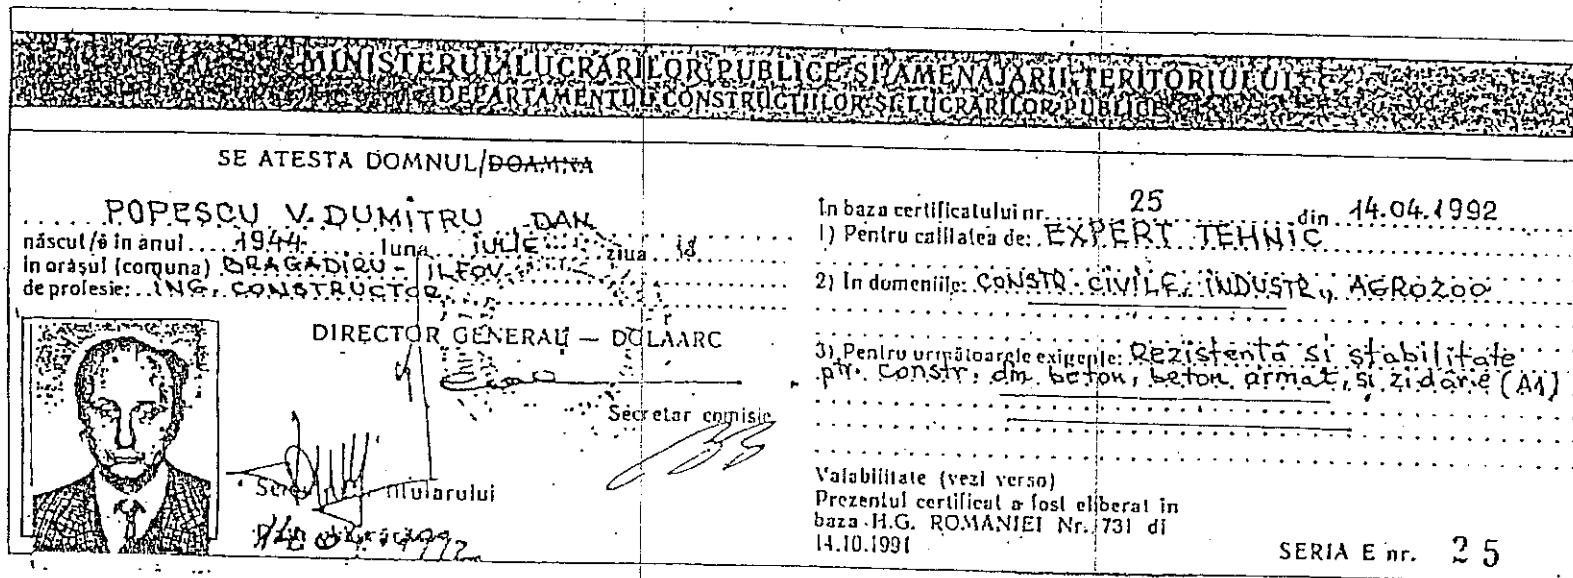 MINISTERUL LUCRARILOR PUBLICE SI AMENAJARII TERITORIULUI
DEPARTAMENTUL CONSTRUCTIILOR SI LUCRARILOR PUBLICE
SE ATESTA DOMNUL/DOAMNA
POPESCU V. DUMITRU DAN
născut/ă în anul 1944 luna iULiE ziua 18
în orașul (comuna) BRAGADIRU - ILFOV
de profesie: ING. CONSTRUCTOR
DIRECTOR GENERAL — DCLAARC
Secretar comisie
titularului
In baza certificatului nr. 25 din 14.04.1992
1) Pentru calitatea de: EXPERT TEHNIC
2) In domeniile: CONSTR. CIVILE, INDUSTR., AGROZOO
3) Pentru următoarele exigențe: Rezistentă si stabilitate
ptr. constr. din beton, beton armat, si zidărie (A1)
Valabilitate (vezi verso)
Prezentul certificat a fost eliberat în
baza H.G. ROMANIEI Nr. 731 di
14.10.1991
SERIA E nr. 25